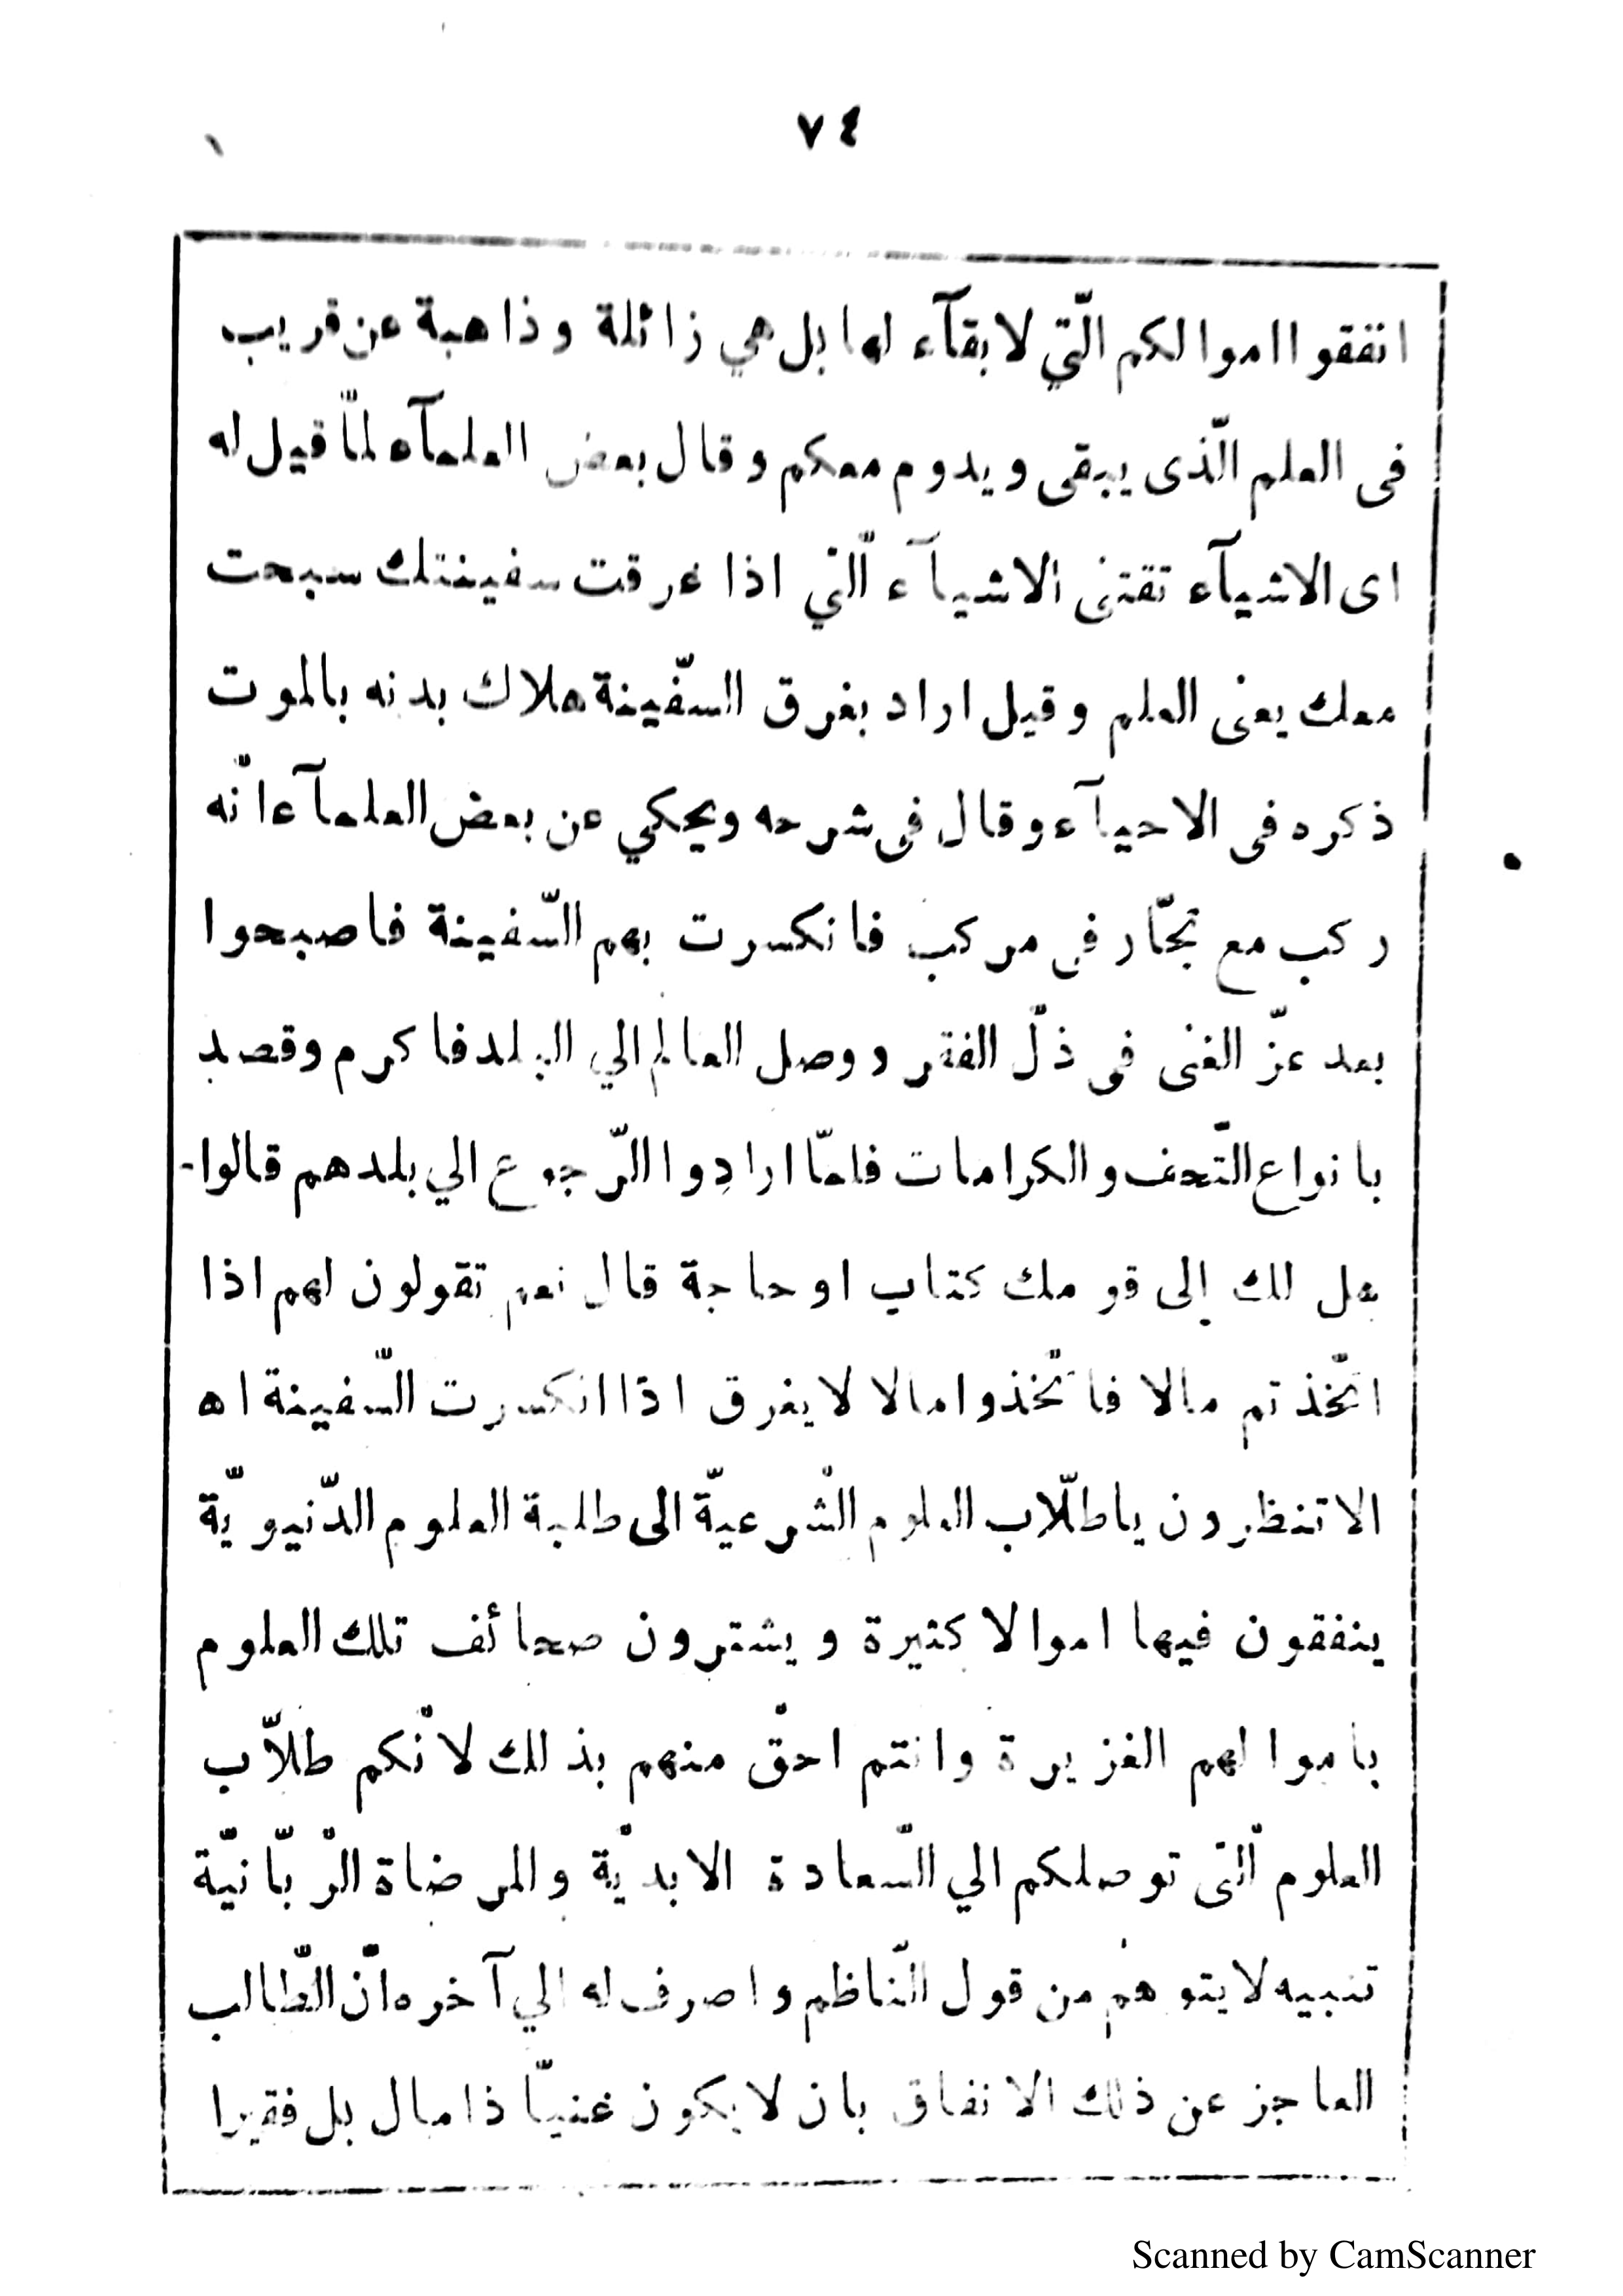 ٧٤
انفقوا اموالكم الّتي لا بقآء لها بل هي زائلة وذاهبة عن قريب
فى العلم الّذى يبقى ويدوم معكم وقال بعض العلمآء لمّا قيل له
اى الاشيآء تقتنى الاشيآء الّتي اذا غرقت سفينتك سبحت
معك يعنى العلم وقيل اراد بغرق السّفينة هلاك بدنه بالموت
ذكره فى الاحيآء وقال فى شرحه ويحكي عن بعض العلمآء انّه
ركب مع تجّار فى مركب فانكسرت بهم السّفينة فاصبحوا
بعد عزّ الغنى فى ذلّ الفقر ووصل العالم الي البلد فاكرم وقصد
بانواع التّحف والكرامات فلمّا ارادوا الرّجوع الي بلدهم قالوا
هل لك إلى قومك كتاب او حاجة قال نعم تقولون لهم اذا
اتّخذتم مالا فاتّخذوا مالا لا يغرق اذا انكسرت السّفينة اه
الا تنظرون يا طلّاب العلوم الشّرعيّة الى طلبة العلوم الدّنيويّة
ينفقون فيها اموالا كثيرة ويشترون صحائف تلك العلوم
باموالهم الغزيرة وانتم احقّ منهم بذلك لانّكم طلّاب
العلوم الّتى توصلكم الي السّعادة الابديّة والمرضاة الرّبّانيّة
تنبيه لا يتوهّم من قول النّاظم واصرف له الي آخره انّ الطّالب
العاجز عن ذلك الانفاق بان لا يكون غنيّا ذا مال بل فقيرا
Scanned by CamScanner